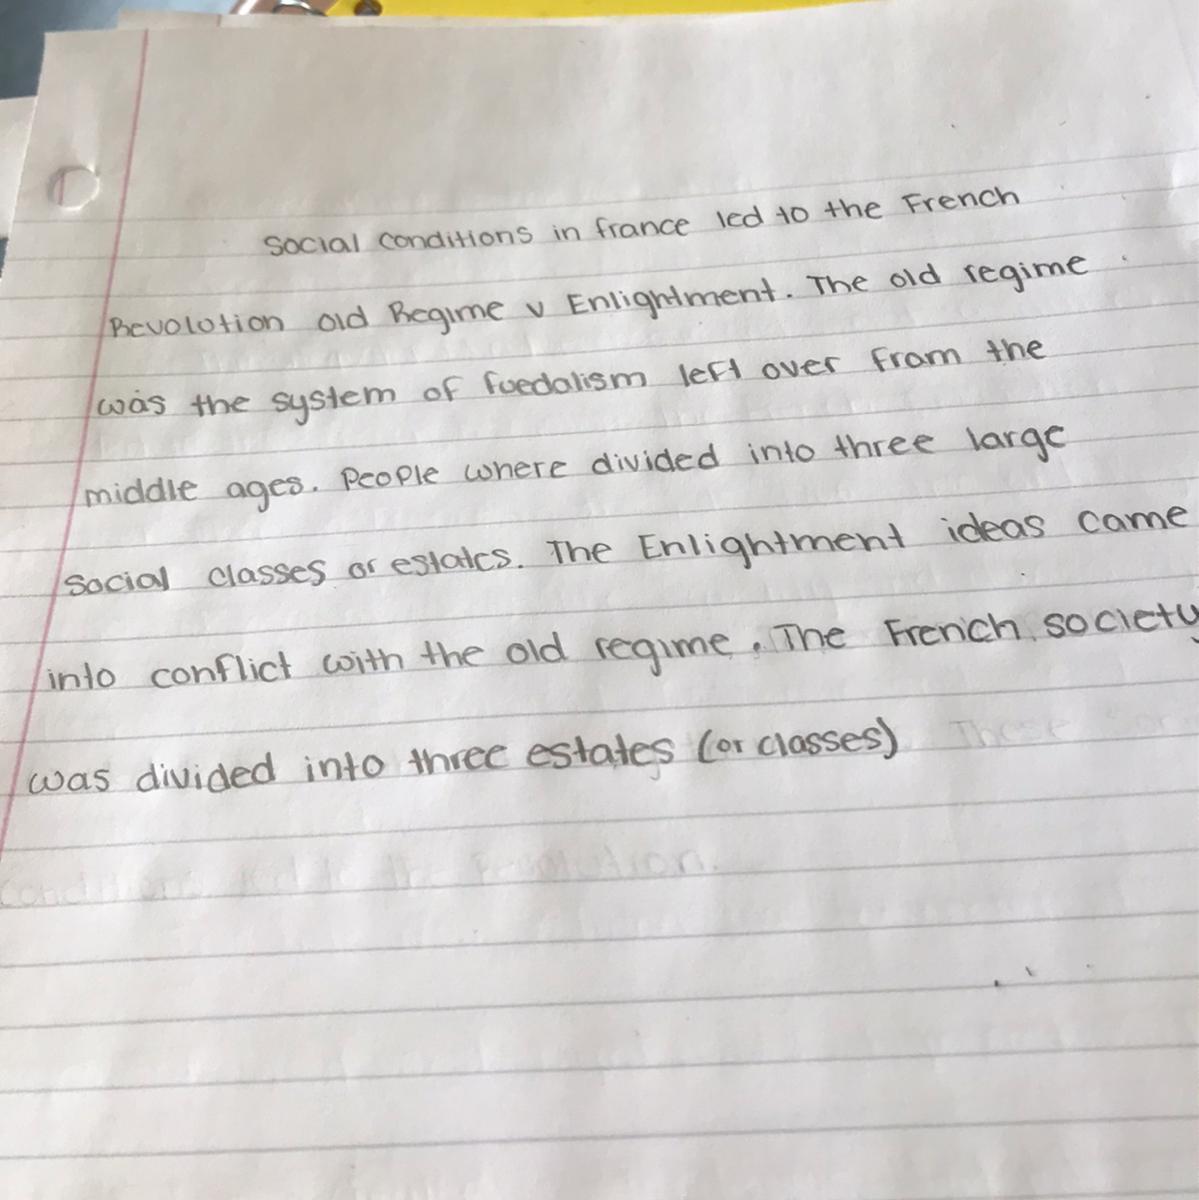 Social conditions in france led to the French
Revolution old Regime v Enlightment. The old regime
was the system of fuedalism left over from the
middle ages. People where divided into three large
Social classes or estates. The Enlightment ideas came
into conflict with the old regime. The French society
was divided into three estates (or classes) These
Conditions led to the Revolution.